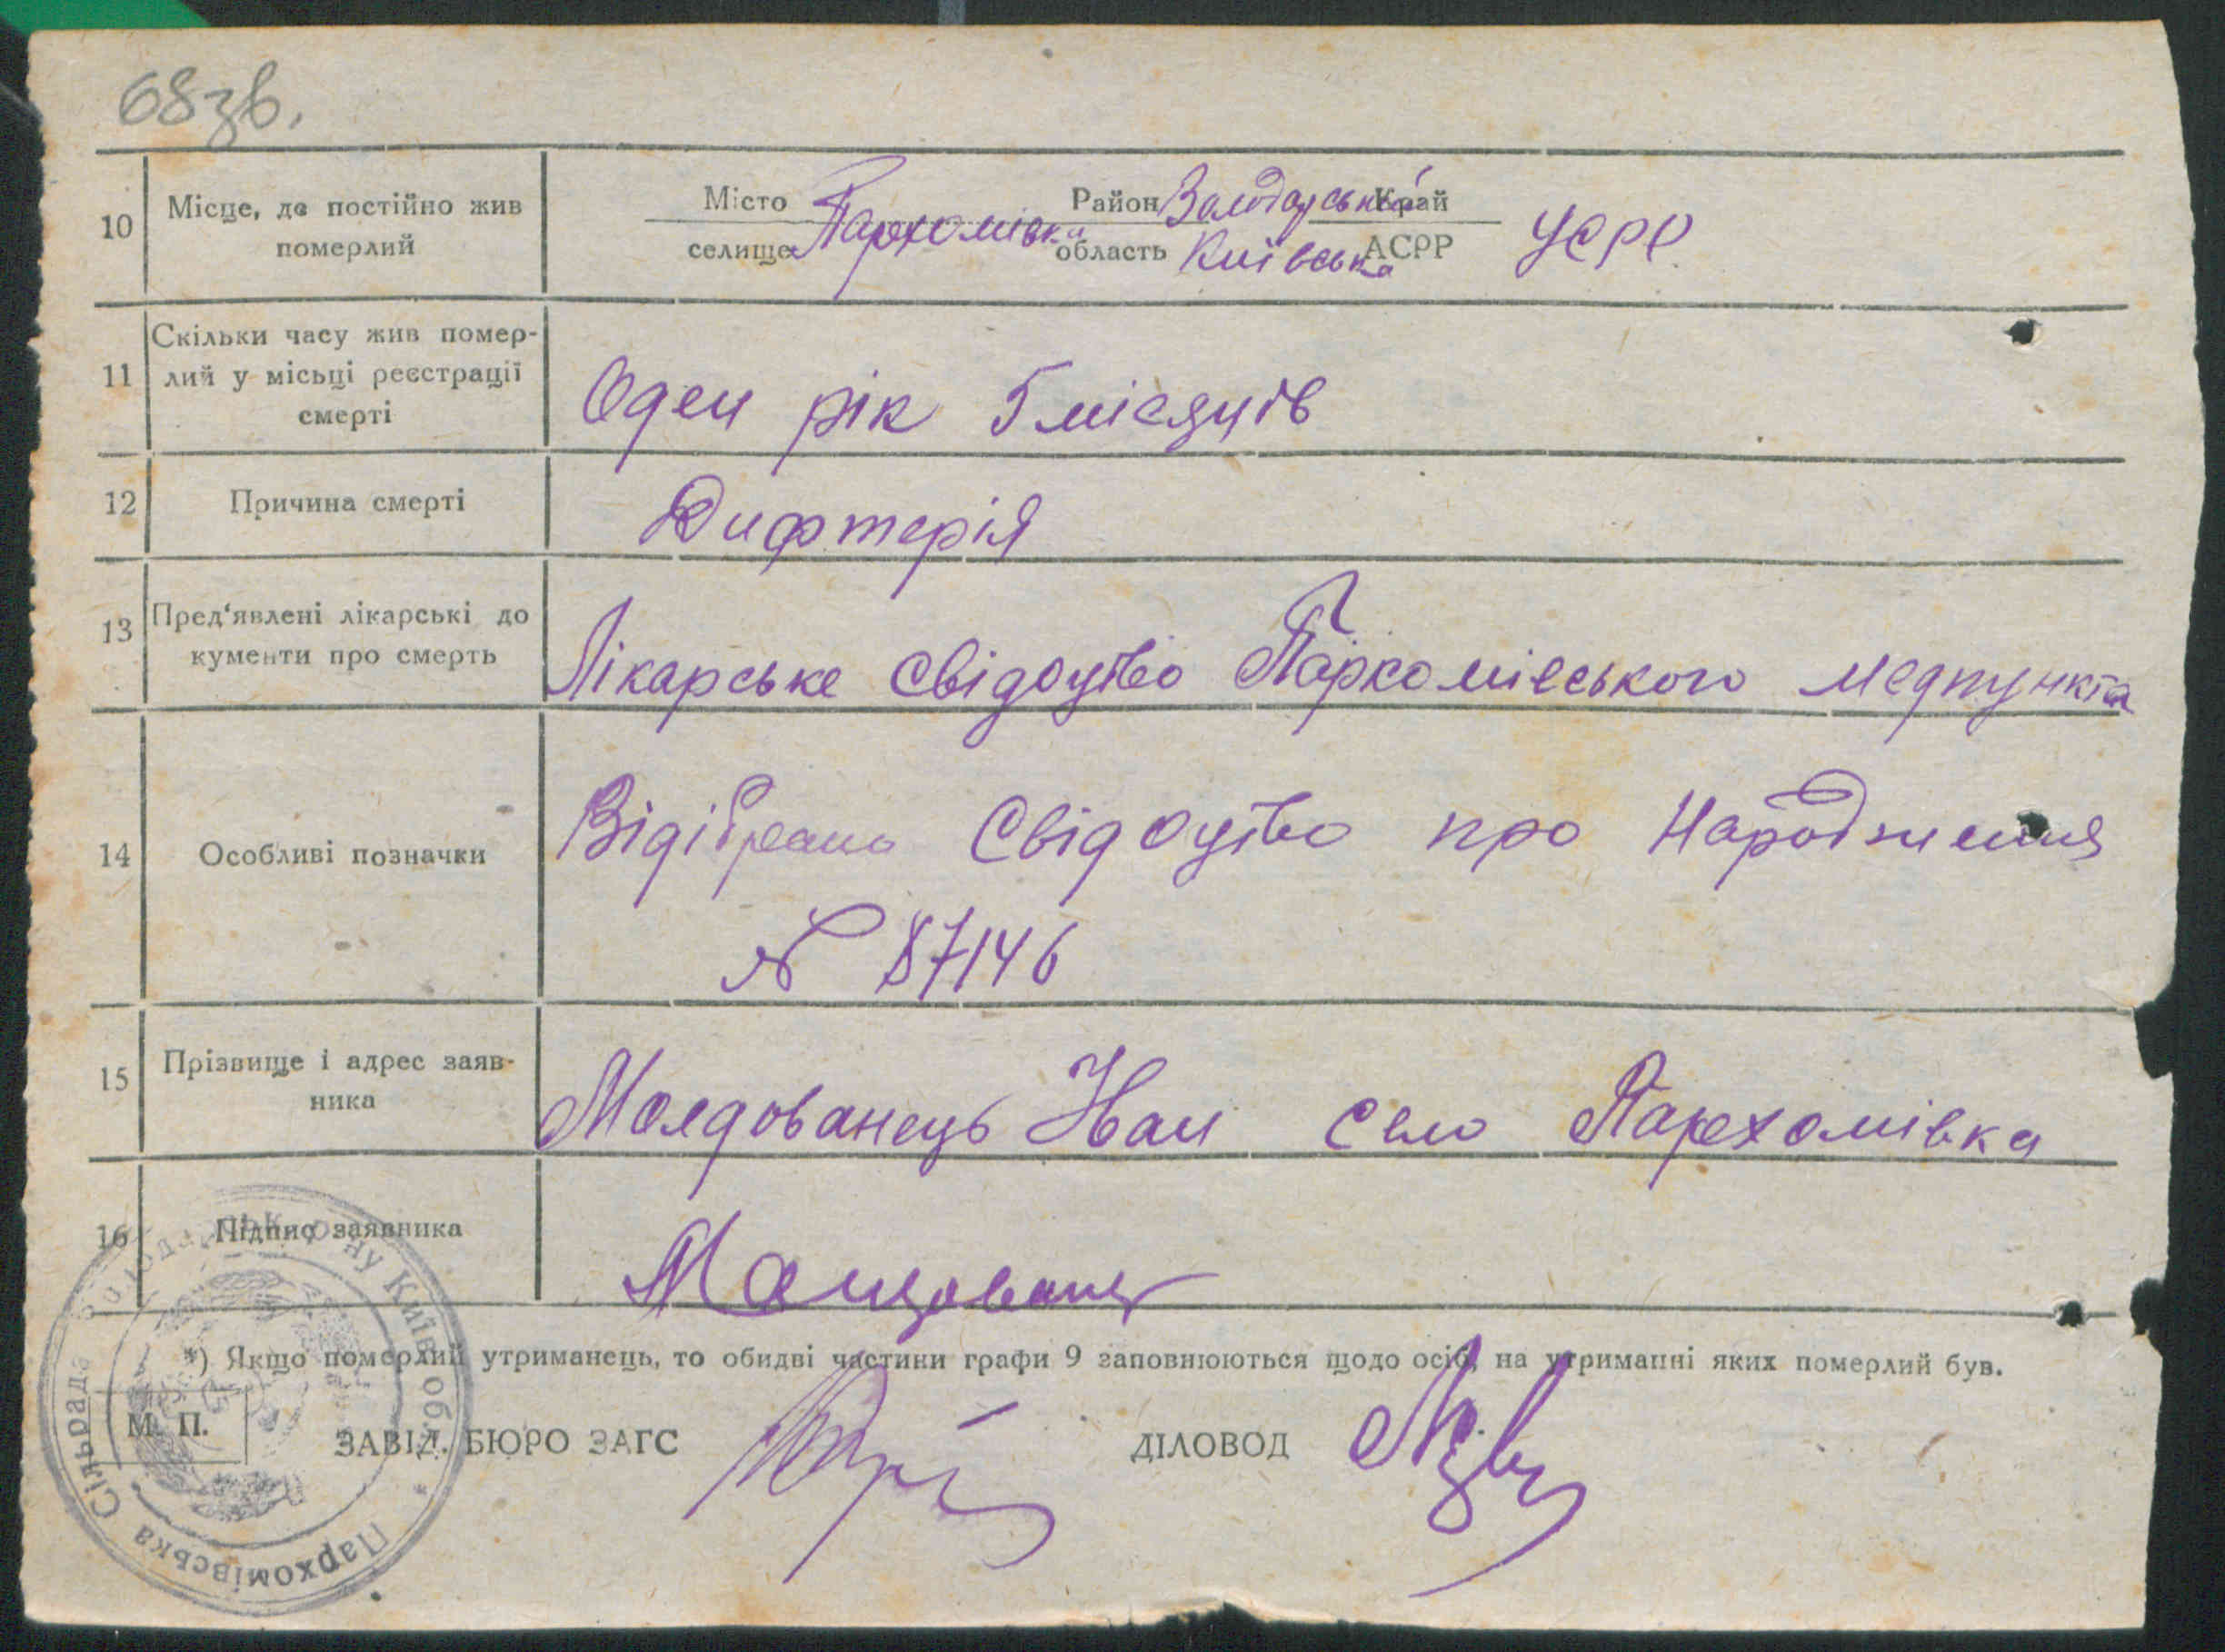 68 зв.
10 Місце, де постійно жив померлий
Місто Район Володарський Край
селище Пархомівка область Київська АСРР УСРР
11 Скільки часу жив помер-
лий у місьці реєстрації
смерті
Оден рік 5 місяців
12 Причина смерті Дифтерія
13 Пред‘явлені лікарські до
кументи про смерть
Лікарське свідоцтво Паркомівського медпункта
14 Особливі позначки
Відібрано Свідоцтво про Народження
№ 87146
15 Прізвище і адрес заяв-
ника
Молдованець Іван село Пархомівка
16 Підпис заявника
*) Якщо померлий утриманець, то обидві частини графи 9 заповнюються щодо осіб, на утриманні яких померлий був.
М. П.
ЗАВІД. БЮРО ЗАГС ДІЛОВОД
Пархомівська Сільрада Володарськ. р-ну Київ. обл.